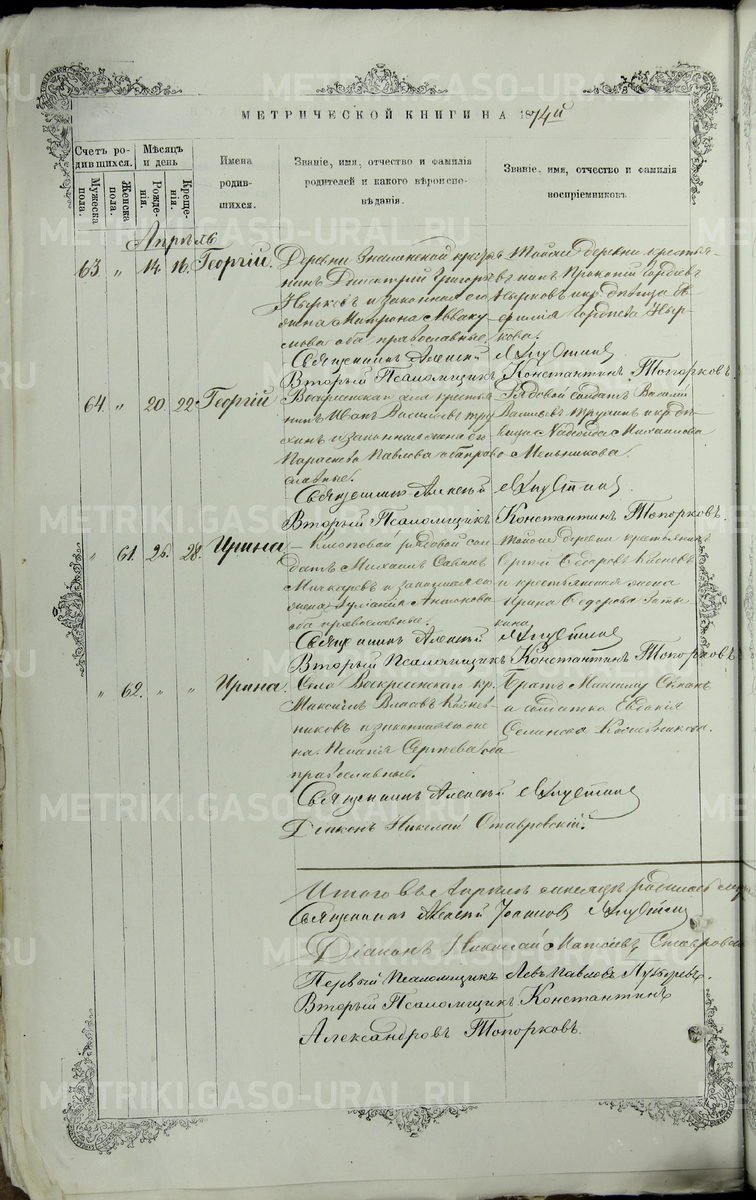 METRIKI.GASO-URAL.RU
МЕТРИЧЕСКОЙ КНИГИ НА 1874й
Счетъ родившихся.
Мѣсяцъ и день
Мужеска пола.
Женска пола.
Рожденія.
Крещенія.
Имена родившихся.
Званіе, имя, отчество и фамилія родителей и какого вѣроисповѣданія.
Званіе, имя, отчество и фамилія воспріемниковъ.
Апрѣль
63 " 14. 16. Георгій.
Деревни Знаменской крестья
нинъ Димитрій Григорьевъ
Нырковъ и законная его
жена Матрона Авваку
мова оба православные.
Тойже деревни крестья
нинъ Прокопій Гордѣевъ
Нырковъ и кр. дѣвица
Гордѣева Ныр
кова.
Священникъ Алексій
Вторый Псаломщикъ Константинъ Топорковъ.
64. " 20. 22 Георгій
Воскресенскаго села крестья
нинъ Иванъ Васильевъ Тру
хинъ и законная жена его
Параскева Павлова оба право
славные.
Рядовой солдатъ Василій
Васильевъ Трухинъ и кр. дѣ
вица Надежда Михаилова
Мельникова.
Священникъ Алексій
Вторый Псаломщикъ Константинъ Топорковъ.
" 61. 26. 28. Ирина
рядовой сол
датъ Михаилъ
и законная его
жена Антонова
оба православные.
Тойже деревни крестьянинъ
Сергій Ѳедоровъ
и крестьянская жена
Ирина Ѳедорова
кина.
Священникъ Алексій
Вторый Псаломщикъ Константинъ Топорковъ
" 62. " " Ирина.
Села Воскресенскаго кр.
Максимъ Власовъ
никовъ и законная его же
на Пелагія Сергѣева оба
православные.
Братъ Максиму
и солдатка Евдокія
Священникъ Алексій
Діаконъ Николай Ставровскій.
Итого въ Апрѣлѣ мѣсяцѣ родилось
Священникъ Алексій Іоанновъ
Діаконъ Николай Матѳіевъ Ставров
Первый Псаломщикъ Левъ Павловъ
Вторый Псаломщикъ Константинъ
Александровъ Топорковъ.